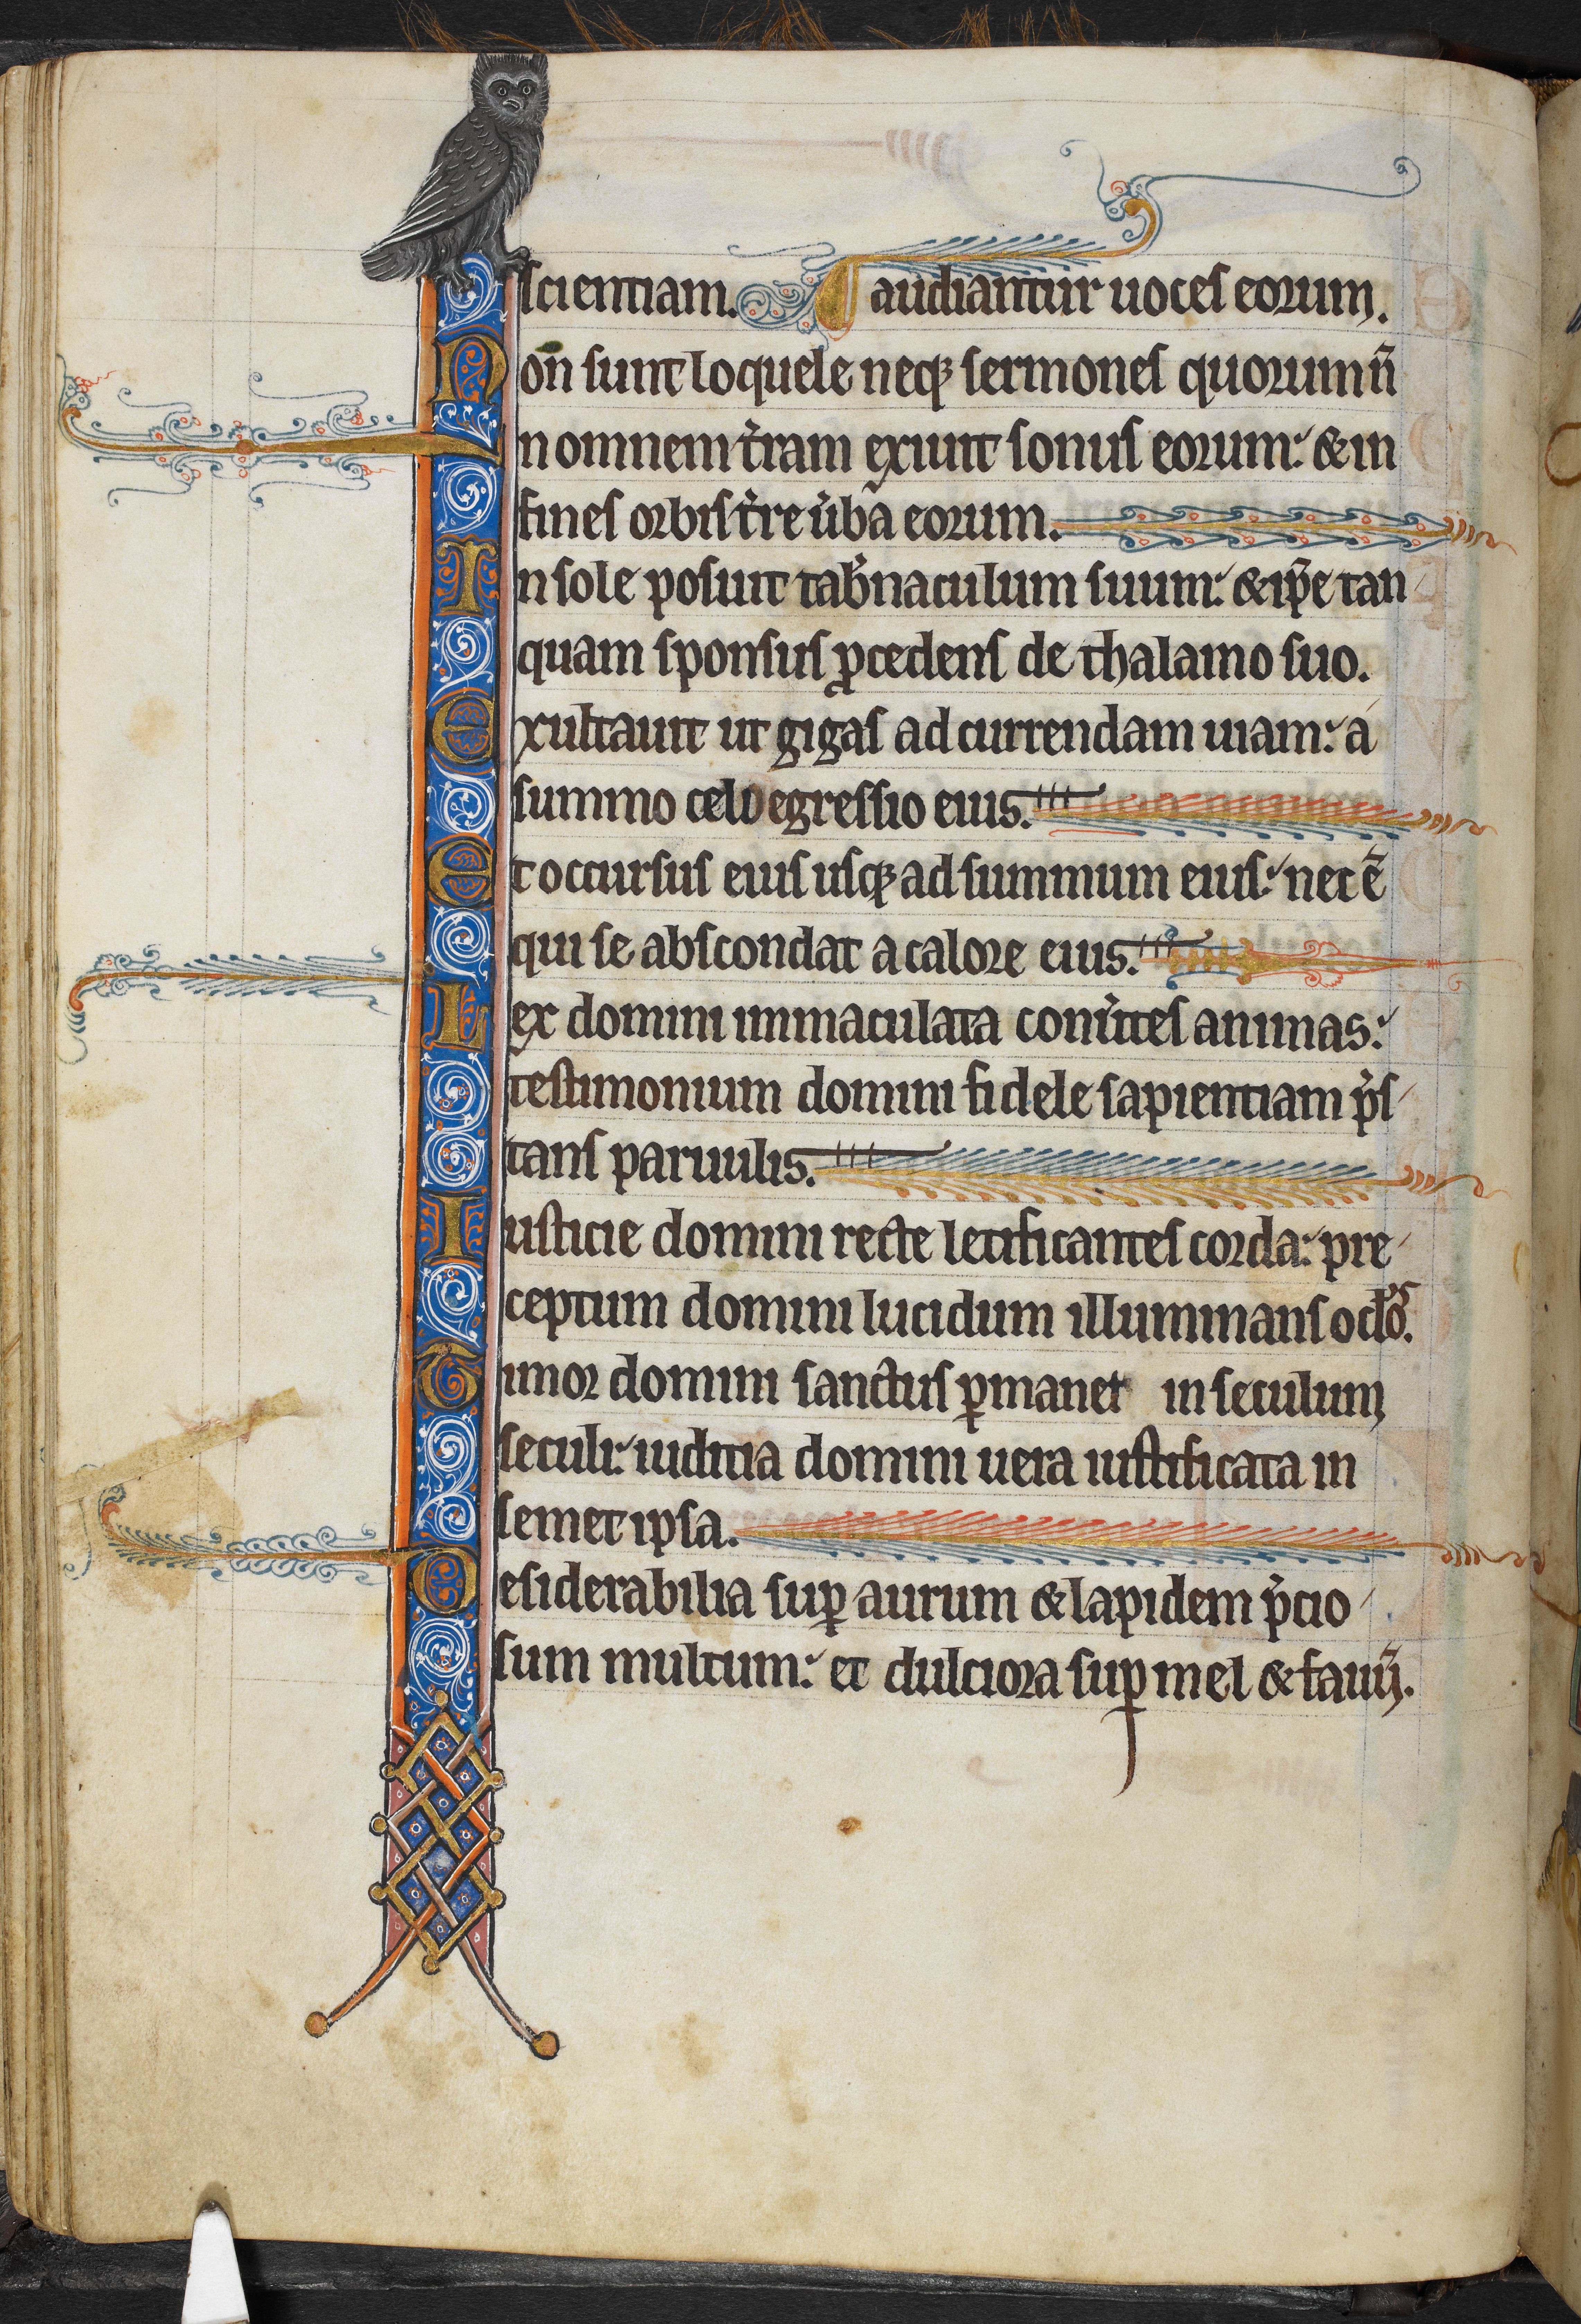 scientiam. audiantur uoces eorum.
Non sunt loquele neq; sermones quorum n̄
In omnem t̉ram exiuit sonus eorum: & in
fines orbis t̉re ủba eorum.
In sole posuit tab̉naculum suum: & ip̄e tan
quam sponsus ꝓcedens de thalamo suo.
Exultauit ut gigas ad currendam uiam: a
summo celo egressio eius.
Et occursus eius usq; ad summum eius: nec ē
qui se abscondat a calore eius.
Lex domini inmaculata conủtes animas:
testimonium domini fidele sapientiam p̉s
tans paruulis.
Iusticie domini recte letificantes corda: pre
ceptum domini lucidum illuminans oclỏs.
Timor domini sanctus ꝑmanet in seculum
seculi: iudicia domini uera iustificata in
semet ipsa.
Desiderabilia suꝑ aurum & lapidem p̉cio
sum multum: et dulciora suꝑ mel & fauū.